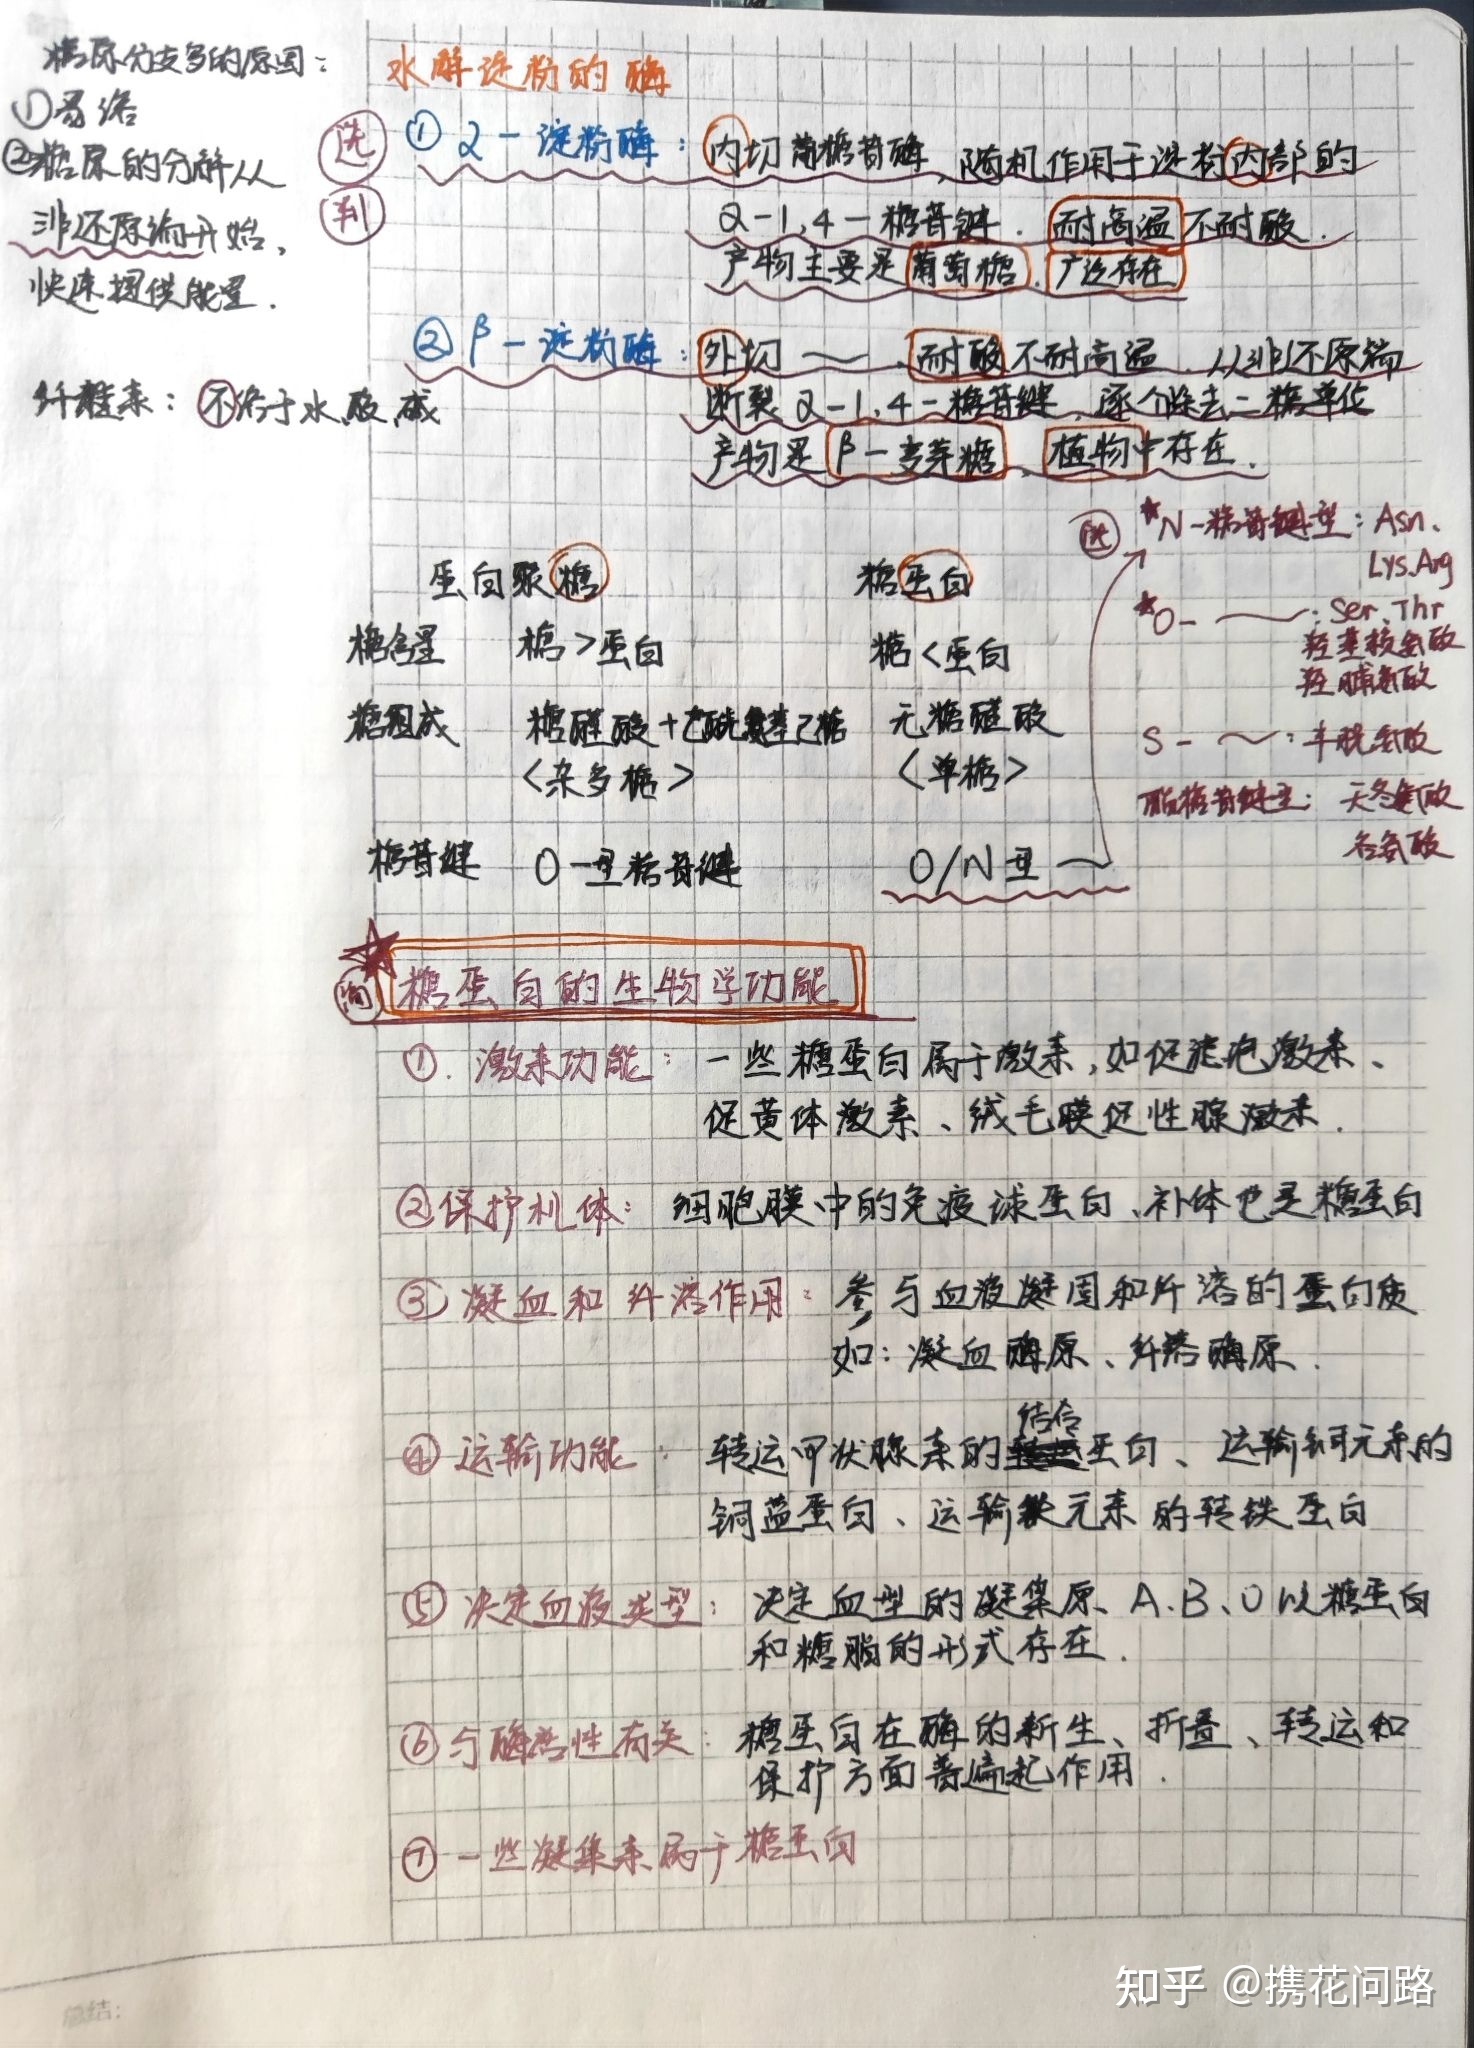 糖原分支多的原因：
①易溶
②糖原的分解从
非还原端开始，
快速提供能量.
纤维素：不溶于水酸碱
水解淀粉的酶
选
判
①α-淀粉酶：内切葡糖苷酶,随机作用于淀粉内部的
α-1,4-糖苷键.耐高温不耐酸.
产物主要是葡萄糖.广泛存在
②β-淀粉酶：外切～.耐酸不耐高温.从非还原端
断裂α-1,4-糖苷键,逐个除去二糖单位
产物是β-麦芽糖,植物中存在.
选
*N-糖苷键型：Asn.
Lys.Arg
*O-～：Ser.Thr
羟基赖氨酸
羟脯氨酸
S-～：半胱氨酸
酯糖苷键型：天冬氨酸
谷氨酸
蛋白聚糖 糖蛋白
糖含量 糖>蛋白 糖<蛋白
糖组成 糖醛酸+乙酰氨基己糖 无糖醛酸
<杂多糖> <单糖>
糖苷键 O-型糖苷键 O/N型～
糖蛋白的生物学功能
①.激素功能：一些糖蛋白属于激素,如促滤泡激素、
促黄体激素、绒毛膜促性腺激素.
②保护机体：细胞膜中的免疫球蛋白、补体也是糖蛋白
③凝血和纤溶作用：参与血液凝固和纤溶的蛋白质
如：凝血酶原、纤溶酶原.
结合
④运输功能：转运甲状腺素的蛋白、运输铜元素的
铜蓝蛋白、运输铁元素的转铁蛋白
⑤决定血液类型：决定血型的凝集原、A.B、O以糖蛋白
和糖脂的形式存在.
⑥与酶活性有关：糖蛋白在酶的新生、折叠、转运和
保护方面普遍起作用.
⑦一些凝集素属于糖蛋白
总结：
知乎 @携花问路